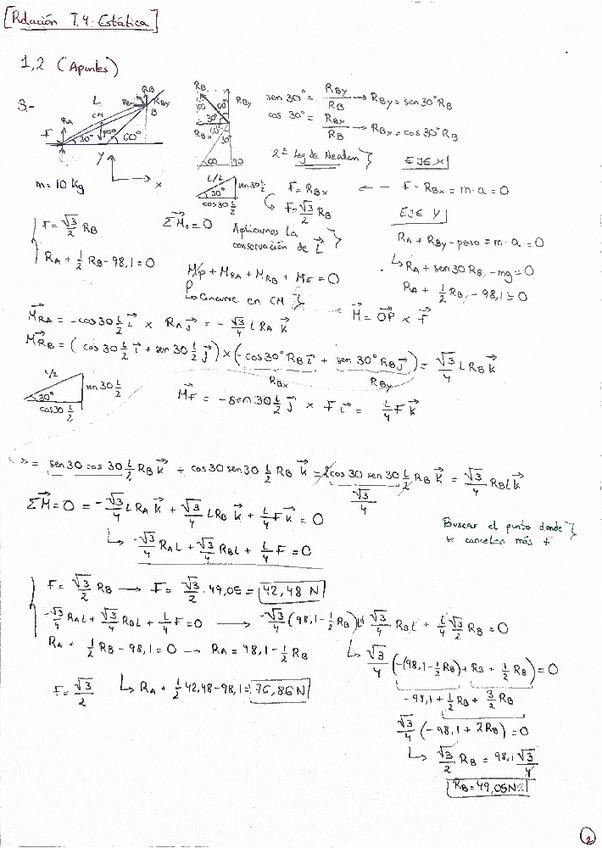 [Relación T.4: Estática]
1,2 (Apuntes)
3.-
L
CM
R_A
F
30°
60°
R_B
R_By
B
y
x
m = 10 Kg
R_B
60
30°
R_By
R_Bx
60
sen 30° = R_By/R_B → R_By = sen 30° R_B
cos 30° = R_Bx/R_B → R_Bx = cos 30° R_B
2ª Ley de Newton} EJE X
L/2
30°
sen 30 L/2
cos 30 L/2
F = R_Bx ← F - R_Bx = m·a = 0
F = √3/2 R_B
EJE Y
R_A + R_By - peso = m·a = 0
↳ R_A + sen 30 R_B - mg = 0
R_A + 1/2 R_B - 98,1 = 0
{F = √3/2 R_B
R_A + 1/2 R_B - 98,1 = 0
ΣM⃗ = 0 Aplicamos la conservación de L⃗}
M_P + M_RA + M_RB + M_F = 0
↳ Concurre en CM}
M⃗ = OP⃗ × F⃗
M⃗_RA = -cos 30 L/2 i⃗ × R_A j⃗ = -√3/4 L R_A k⃗
M⃗_RB = (cos 30 L/2 i⃗ + sen 30 L/2 j⃗) × (-cos 30° R_B i⃗ + sen 30° R_B j⃗) = √3/4 L R_B k⃗
R_Bx R_By
L/2
30°
sen 30 L/2
cos 30 L/2
M⃗_F = -sen 30 L/2 j⃗ × F i⃗ = L/4 F k⃗
= sen 30 cos 30 L/2 R_B k⃗ + cos 30 sen 30 L/2 R_B k⃗ = 2 cos 30 sen 30 L/2 R_B k⃗ = √3/4 R_B L k⃗
√3/4
ΣM⃗ = 0 = -√3/4 L R_A k⃗ + √3/4 L R_B k⃗ + L/4 F k⃗ = 0
↳ -√3/4 R_A L + √3/4 R_B L + L/4 F = 0
Buscar el punto donde se cancelan más f}
{F = √3/2 R_B → F = √3/2 · 49,05 = 42,48 N
-√3/4 R_A L + √3/4 R_B L + L/4 F = 0 → -√3/4 (98,1 - 1/2 R_B) L + √3/4 R_B L + L/4 √3/2 R_B = 0
R_A + 1/2 R_B - 98,1 = 0 → R_A = 98,1 - 1/2 R_B
↳ √3/4 (-(98,1 - 1/2 R_B) + R_B + 1/2 R_B) = 0
F = √3/2
↳ R_A + 1/2 42,48 - 98,1 = 76,86 N
-98,1 + 1/2 R_B + 3/2 R_B
√3/4 (-98,1 + 2 R_B) = 0
↳ √3/2 R_B = 98,1 √3/4
R_B = 49,05 N
2